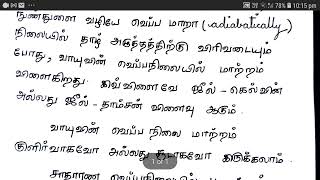 10:15 pm
நுண்துளை வழியே வெப்ப மாறா (adiabatically)
நிலையில் தாழ் அழுத்தத்திற்கு விரிவடையும்
போது, வாயுவின் வெப்பநிலையில் மாற்றம்
விளைகிறது. இவ்விளைவே ஜீல் - கெல்வின்
அல்லது ஜீல் - தாம்சன் விளைவு ஆகும்.
வாயுவின் வெப்ப நிலை மாற்றம்
குளிர்வாகவோ அல்லது சூடாகவோ இருக்கலாம்.
சாதாரண